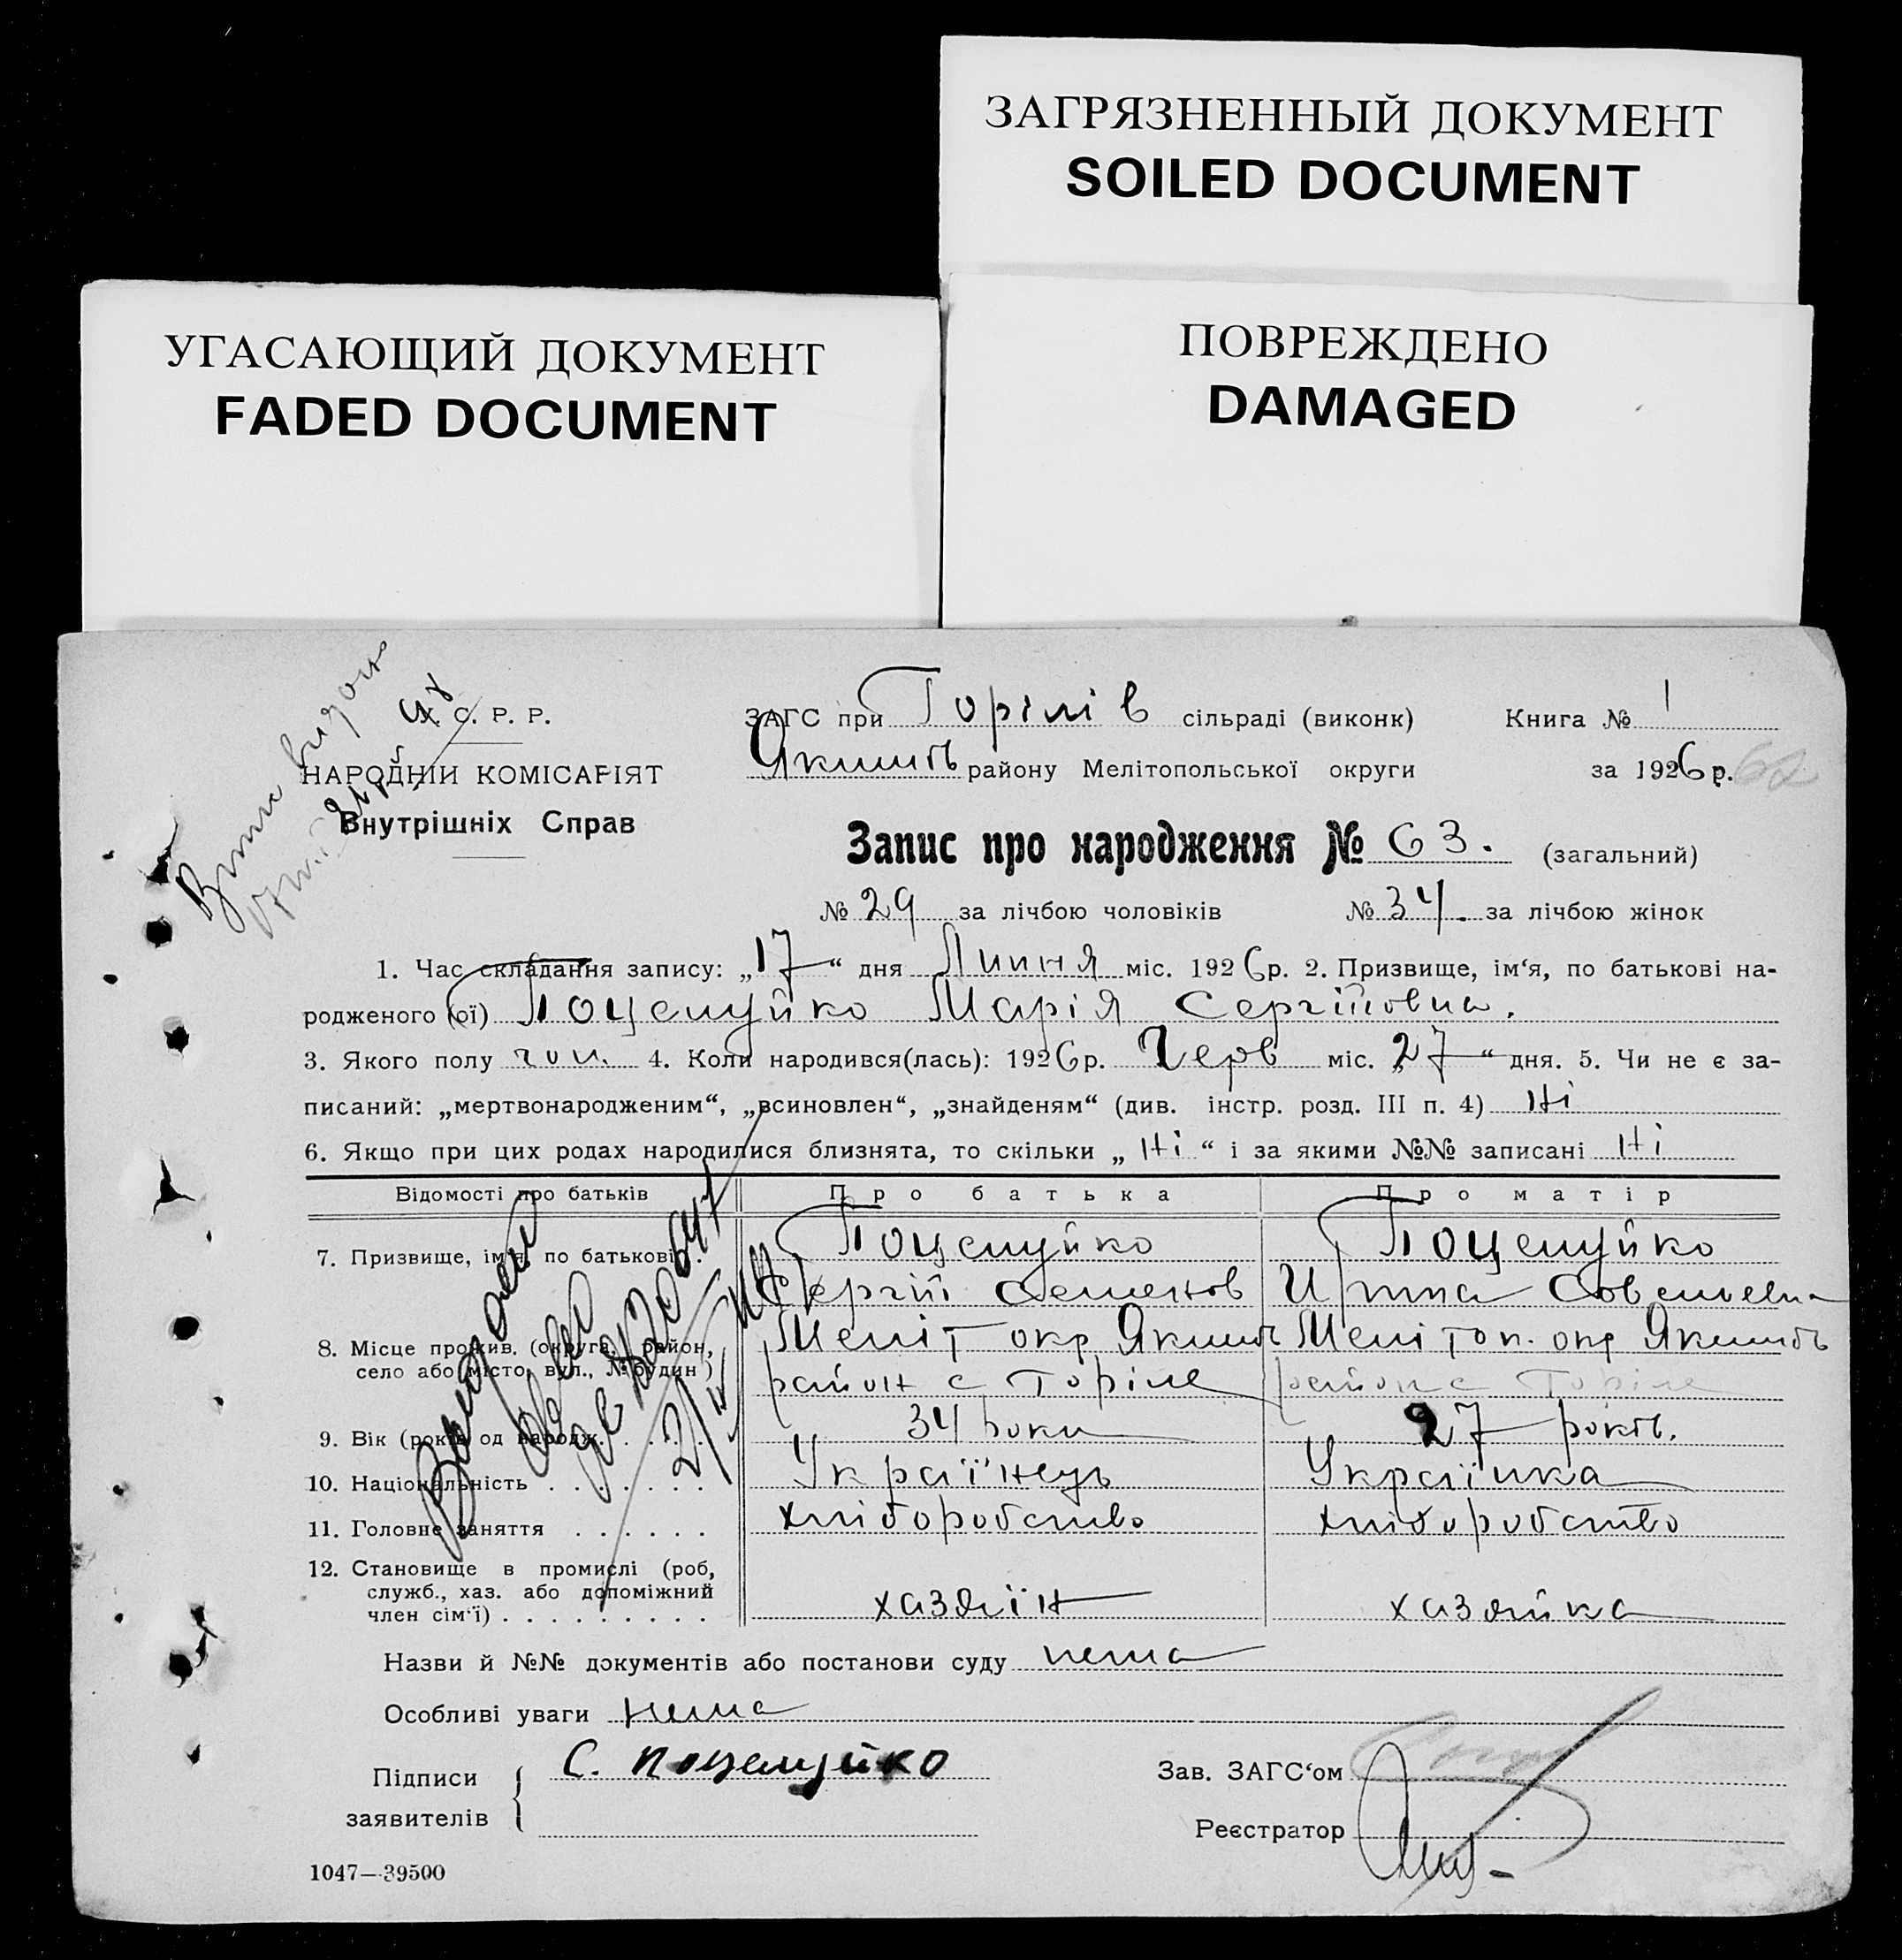 ЗАГРЯЗНЕННЫЙ ДОКУМЕНТ
SOILED DOCUMENT
УГАСАЮЩИЙ ДОКУМЕНТ
FADED DOCUMENT
ПОВРЕЖДЕНО
DAMAGED
С. Р. Р.
НАРОДНІЙ КОМІСАРІЯТ
Внутрішніх Справ
ЗАГС при Горілів сільраді (виконк) Книга № 1
Якимів району Мелітопольської округи за 1926 р. 62
Запис про народження № 63. (загальний)
№ 29 за лічбою чоловіків № 34. за лічбою жінок
1. Час складання запису: „17“ дня Липня міс. 1926 р. 2. Призвище, ім‘я, по батькові на-
родженого (ої) Поцелуйко Марія Сергіївна.
3. Якого полу 4. Коли народився(лась): 1926 р. Черв міс. „27“ дня. 5. Чи не є за-
писаний: „мертвонародженим“, „всиновлен“, „знайденям“ (див. інстр. розд. III п. 4) Ні
6. Якщо при цих родах народилися близнята, то скільки „Ні“ і за якими №№ записані Ні
Відомості про батьків Про батька Про матір
7. Призвище, ім‘я, по батькові Поцелуйко Поцелуйко
Сергій Семенов
8. Місце прожив. (округа, район, Меліт окр Якимів Мелітоп. окр Якимів
село або місто, вул., № будин) район с Горіле район с Горіле
9. Вік (років од народж. 34 роки 27 років.
10. Національність Українець Українка
11. Головне заняття хліборобство хліборобство
12. Становище в промислі (роб,
служб., хаз. або допоміжний
член сім‘ї) хазяїн хазяйка
Назви й №№ документів або постанови суду нема
Особливі уваги нема
Підписи С. Поцелуйко Зав. ЗАГС‘ом
заявителів Реєстратор
1047—39500